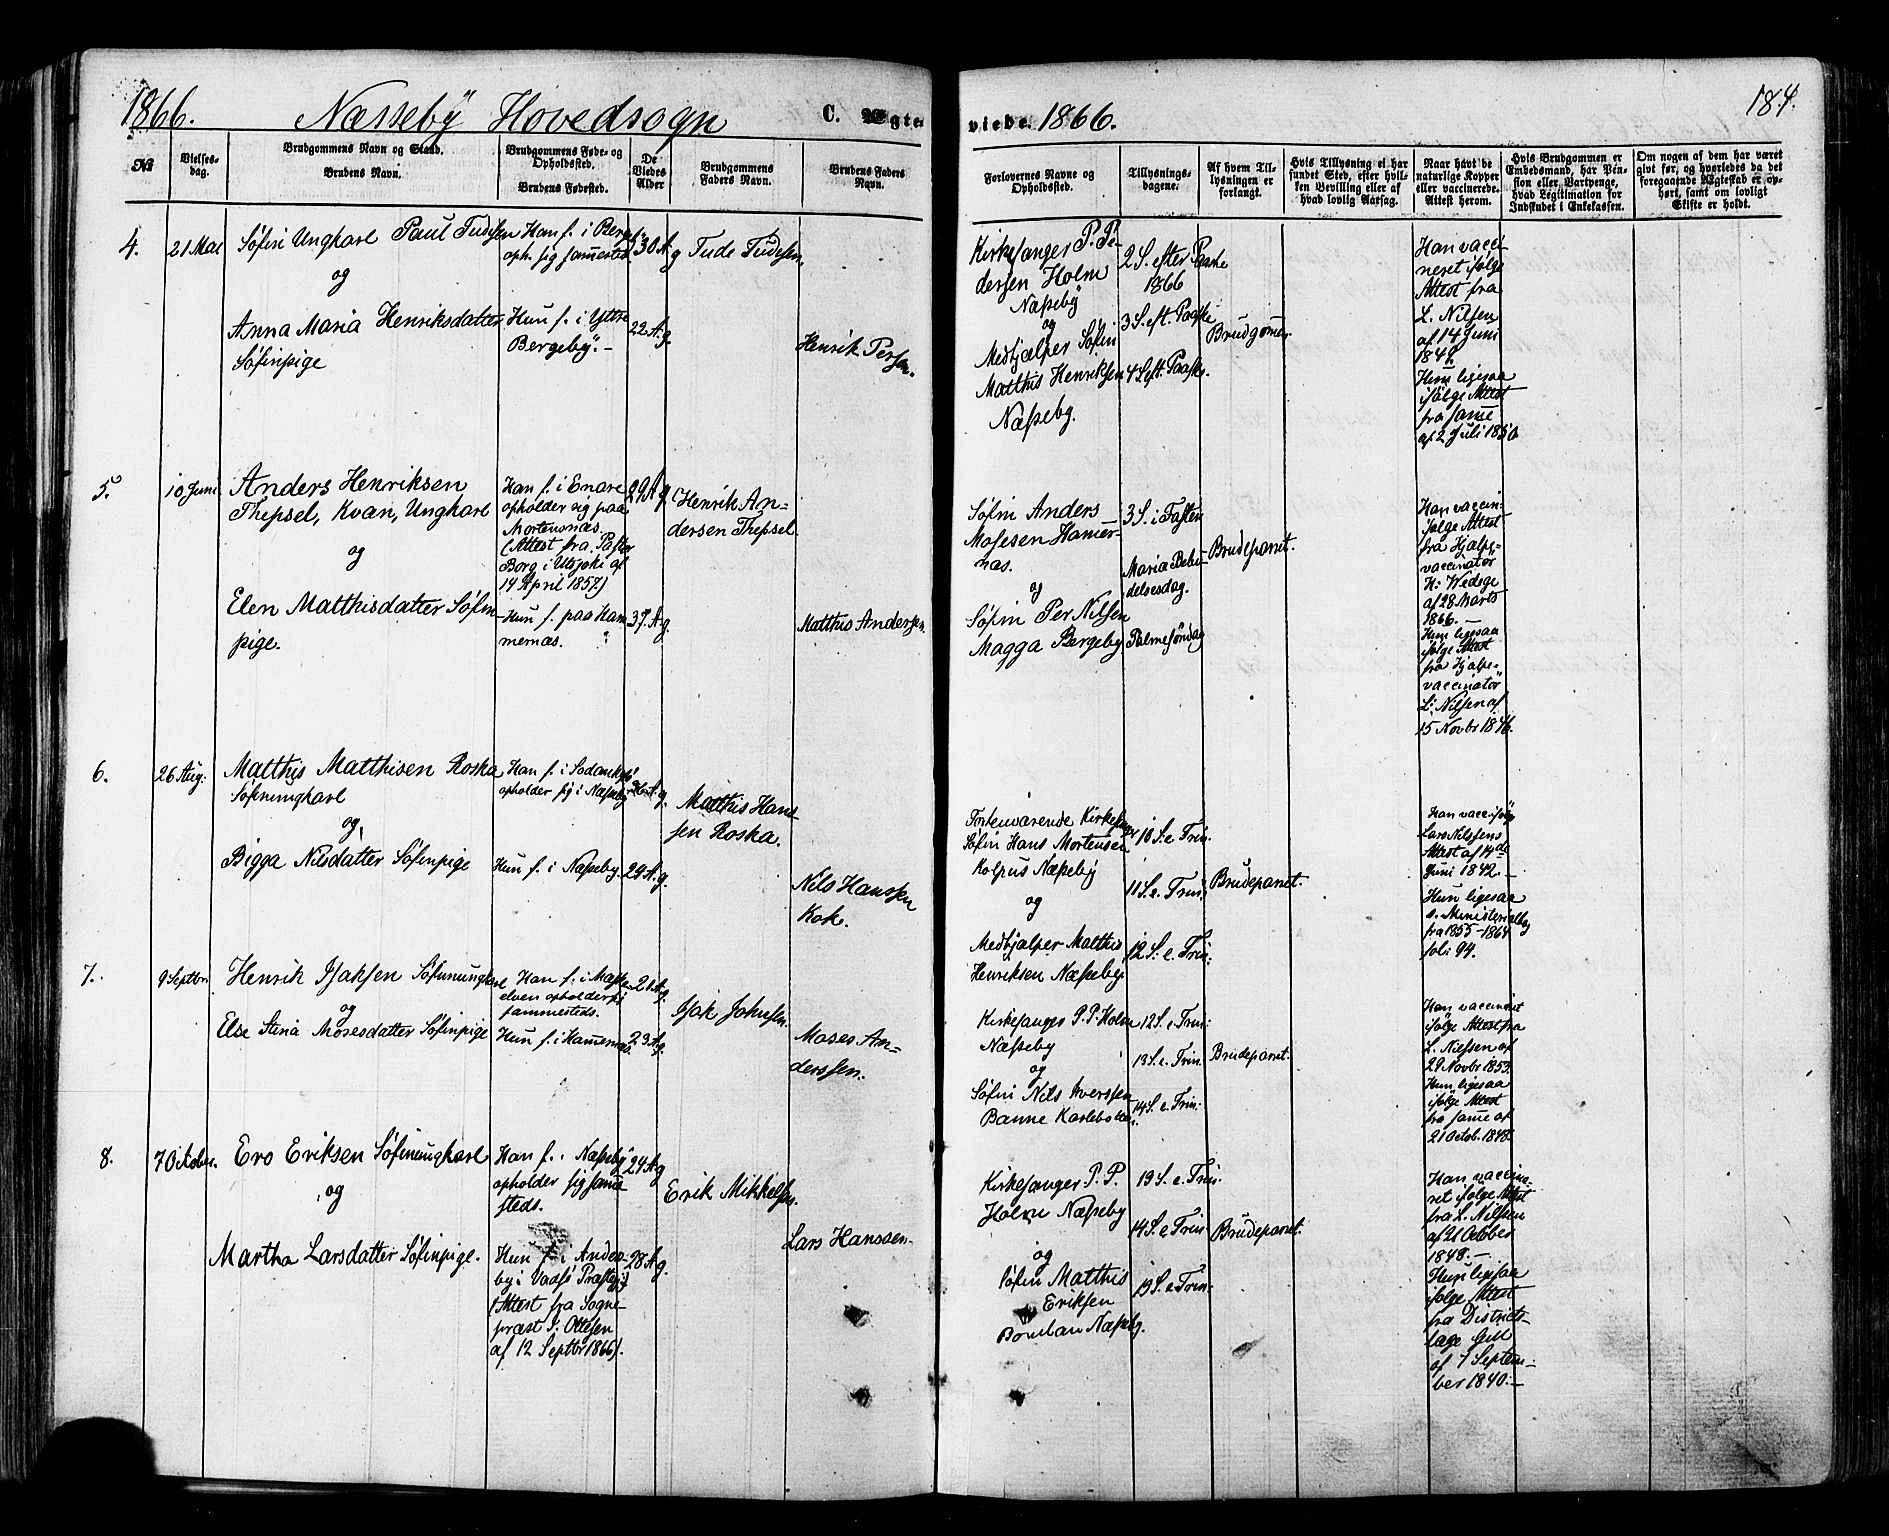 1866. Næsseby Hovedsogn C. Ægte
No
Vielses-
dag.
Brudgommens Navn og Stand.
Brudens Navn.
Brudgommens Føde- og
Opholdssted.
Brudens Fødested.
De
Viedes
Alder
Brudgommens
Faders Navn.
Brudens Faders
Navn.
4.
21 Mai
Søfin Ungkarl Paul Tudesen
og
Anna Maria Henriksdatter
Søfinpige
Han f. i Bergeby
oph. sig sammested
Hun f. i Yttre
Bergeby. -
30 A g
22 A. g.
Tude Tudesen,
Henrik Persen.
5.
10 Juni
Anders Henriksen
Thepsel, Kvæn, Ungkarl
og
Elen Matthisdatter Søfin-
pige.
Han f. i Enare
opholder sig paa
Mortensnæs.
(Attest fra Pastor
Borg i Utsjoki af
14 April 1857)
Hun f. paa Ham
mernæs.
29 A g.
37 A. g.
Henrik An-
dersen Thepsel.
Matthis Andersen.
6.
26 Aug:
Matthis Matthisen Roska
Søfinungkarl
og
Bigga Nilsdatter Søfinpige
Han f. i Sodankylä
opholder sig i Næsseby
Hun f. i Næsseby.
26 A. g.
24 A. g.
Matthis Hans-
sen Roska.
Nils Hanssen
Kok.
7.
9 Septbr.
Henrik Isaksen Søfinungkarl
og
Else Stina Mosesdatter Søfinpige
Han f. i Maske
elven opholder sig
sammesteds.
Hun f. i Hammernæs.
21 A. g.
23 A. g.
Isak Johnsen.
Moses An-
derssen.
8.
7 Octobr.
Ero Eriksen Søfinungkarl
og
Martha Larsdatter Søfinpige.
Han f. i Næsseby
opholder sig samme
steds.
Hun f. i Andes-
by i Vadsø Præstegj.
(Attest fra Sogne-
præst J. Ottesen
af 12 Septbr 1866).
24 A g
28 A g.
Erik Mikkelsen.
Lars Hanssen.
viede. 1866. 184.
Forlovernes Navne og
Opholdssted.
Tillysnings-
dagene.
Af hvem Til-
lysningen er
forlangt.
Hvis Tillysning ei har
fundet Sted, efter hvil-
ken Bevilling eller af
hvad lovlig Aarsag.
Naar havt de
naturlige Kopper
eller vaccinerede.
Attest herom.
Hvis Brudgommen er
Embedsmand, har Pen-
sion eller Vartpenge,
hvad Legitimation for
Indskudet i Enkekassen.
Om nogen af dem har været
givt før, og hvorledes da det
foregaaende Ægteskab er op-
hørt, samt om lovligt
Skifte er holdt.
Kirkesanger P. Pe-
dersen Holm
Næsseby
og
Medhjælper Søfin
Matthis Henriksen
Næsseby.
2 S. efter Paaske
1866
3 S. eft. Paaske
4 S eft. Paaske.
Brudgommen
Han vacci-
neret ifølge
Attest fra
L. Nilsen
af 14 Juni
1842.
Hun ligesaa
ifølge Attest
fra samme
af 2 Juli 1850
Søfin Anders
Mosesen Hammer-
næs.
og
Søfin Per Nilsen
Magga Bergeby
3 S. i Fasten
Maria Bebu-
delsesdag.
Palmesøndag
Brudeparret.
Han vaccin:
ifølge Attest
fra Hjælpe-
vaccinatør
H: Wedege
af 28 Marts
1866. -
Hun ligesaa
ifølge Attest
fra Hjælpe-
vaccinatør
L: Nilsen af
15 Novbr 1846.
Fortenværende Kirkesanger
Søfin Hans Mortensen
Kolpus Næsseby
og
Medhjælper Matthis
Henriksen Næsseby.
10 S. e. Trin.
11 S. e. Trin.
12 S. e. Trin.
Brudeparret.
Han vacc. ifølge
Lars Nilssens
Attest af 14de
Juni 1842. -
Hun ligesaa
s. Ministerialbog
fra 1855-1864
foli 94.
Kirkesanger P. P. Holm
Næsseby
og
Søfin Nils Iverssen
Banne Karlebotten.
12 S. e. Trin.
13 S. e. Trin.
14 S. e. Trin.
Brudeparret.
Han vaccineret
ifølge Attest fra
L. Nilssen af
29 Novbr 1853.
Hun ligesaa
ifølge Attest
fra samme af
21 Octob. 1848.
Kirkesanger P. P.
Holm Næsseby
og
Søfin Matthis
Eriksen
Næsseby.
13 S. e. Trin.
14 S. e. Trin
15 S. e. Trin.
Brudeparret.
Han vaccine-
ret ifølge Attest
fra L. Nilssen
af 21 October
1848. -
Hun ligesaa
ifølge Attest
fra Districts-
læge Gill
af 7 Septem-
ber 1840. -